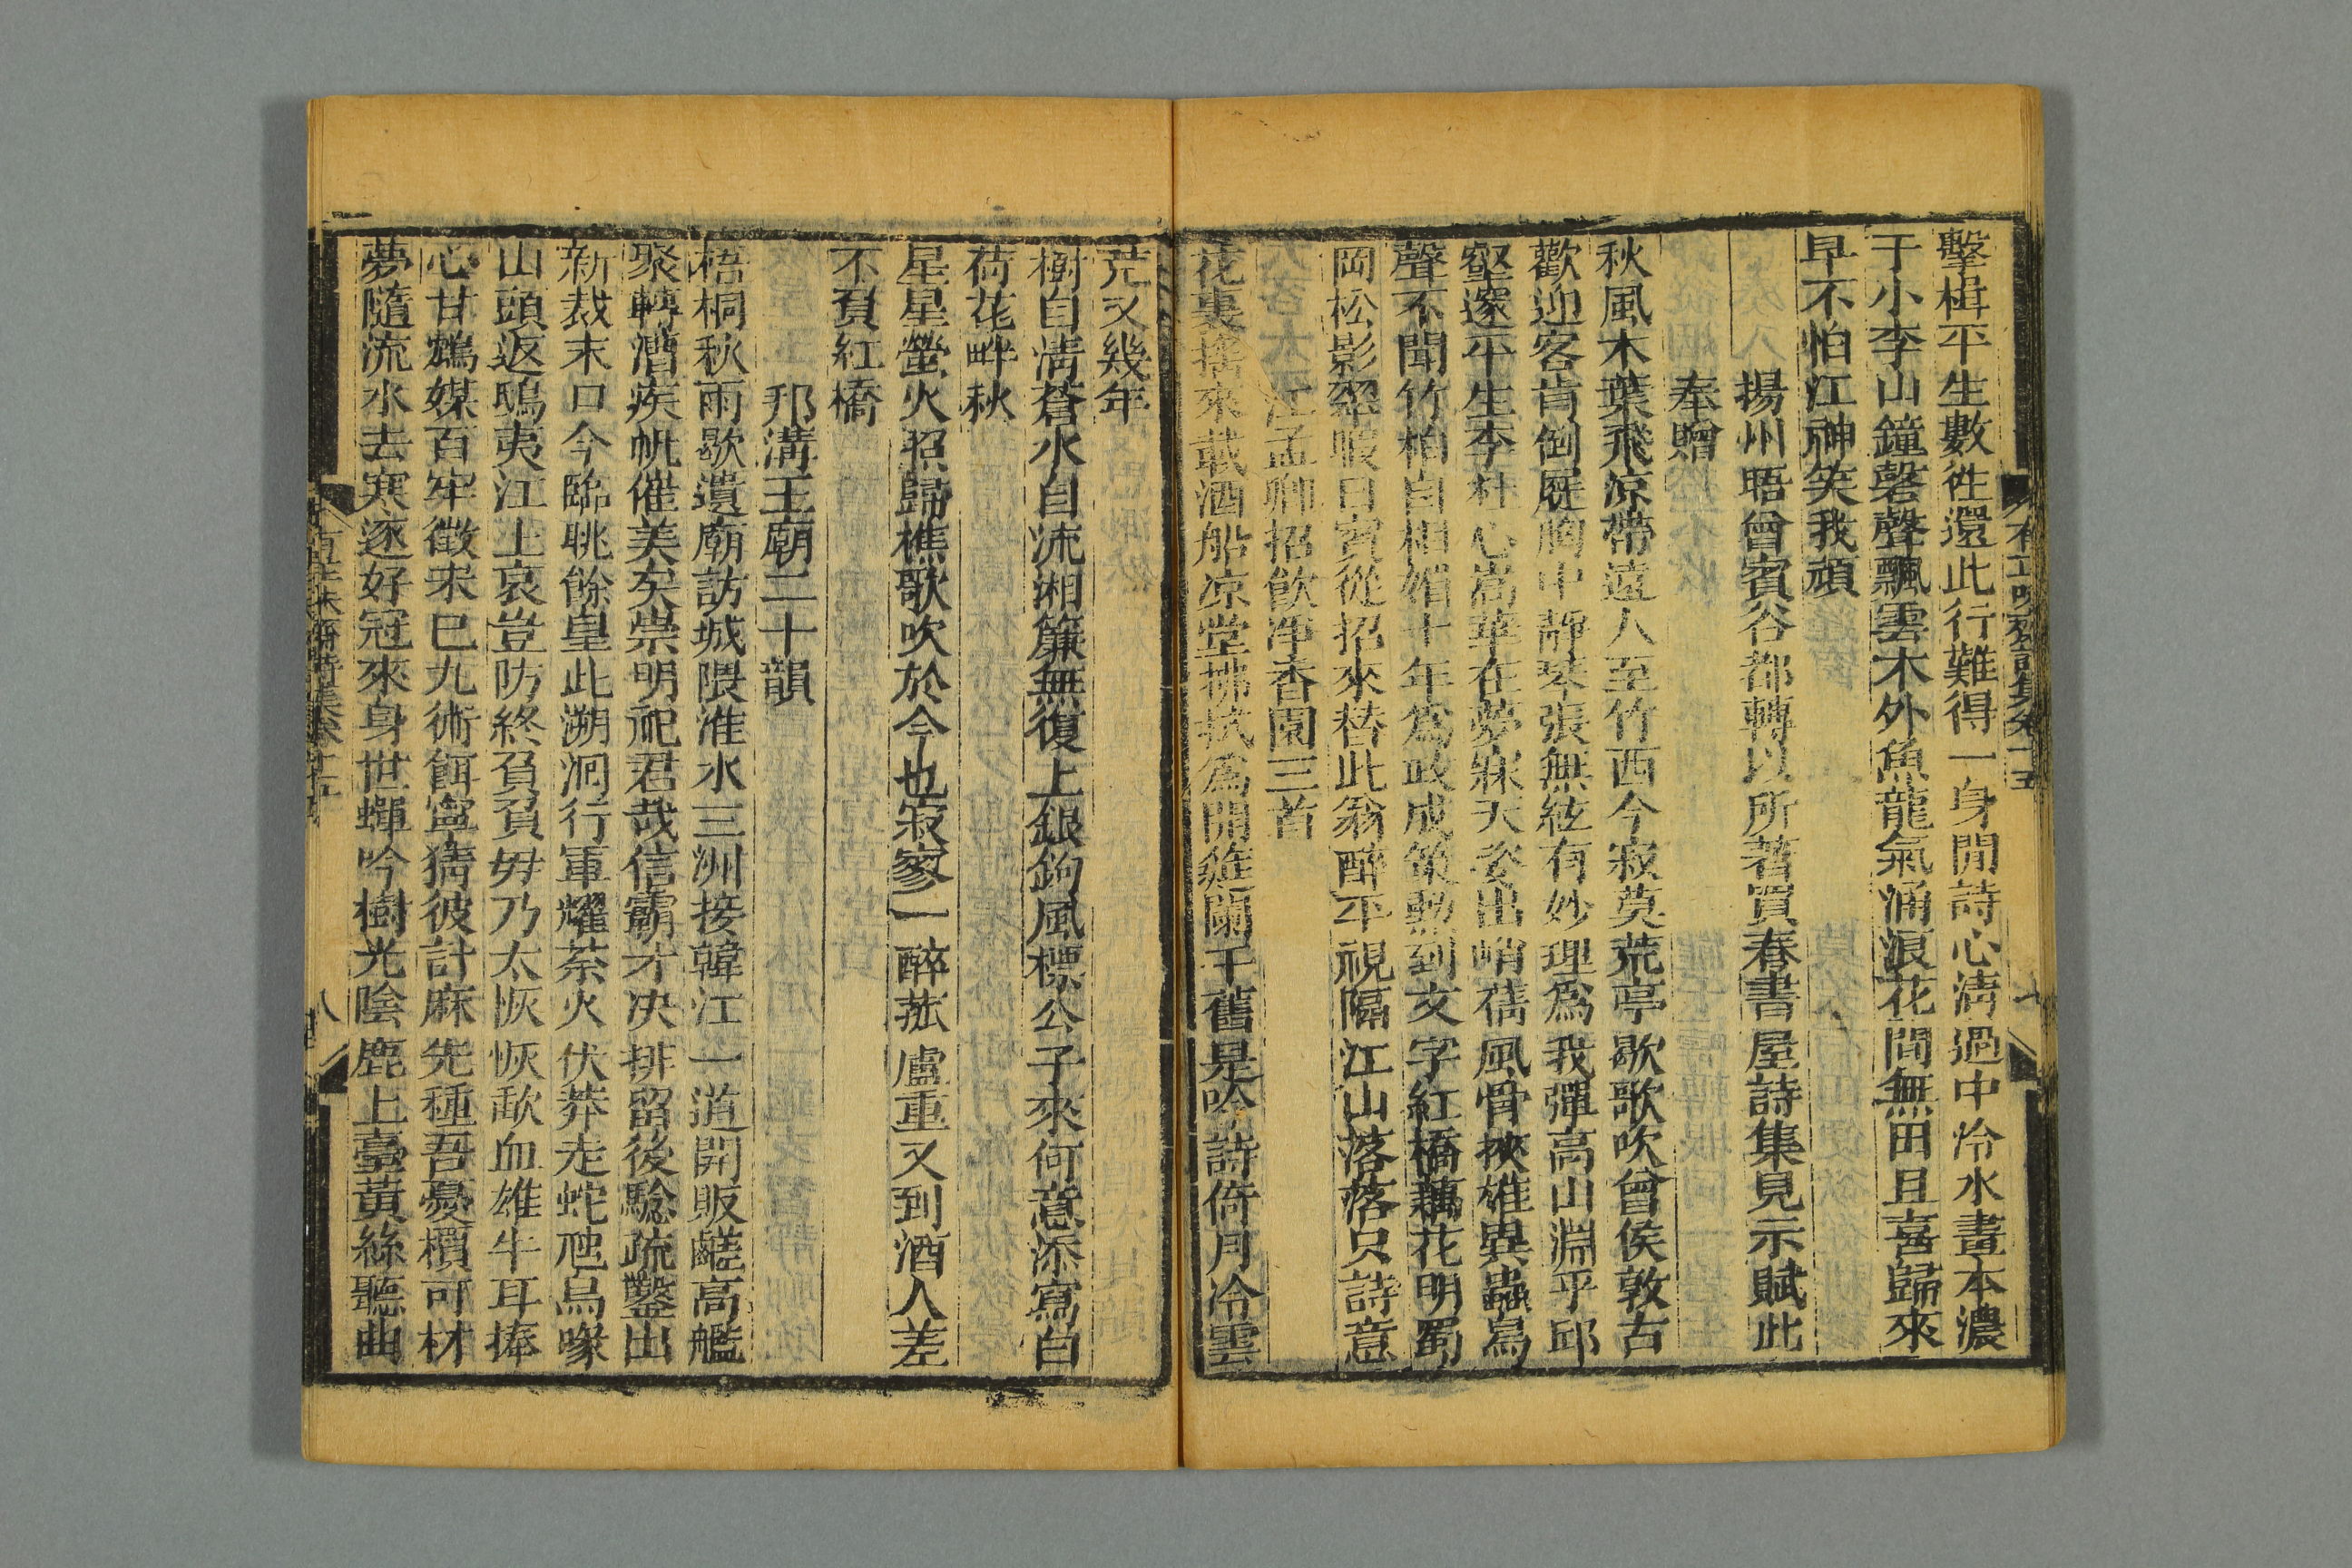 擊楫平生數徃還此行難得一身閒詩心淸過中泠水畫本濃
于小李山鐘磬聲飄雲木外魚龍氣涌浪花間無田且喜歸來
早不怕江神笑我頑
揚州晤曾賓谷都轉以所著賞春書屋詩集見示賦此
奉贈
秋風木葉飛涼帶遠人至竹西今寂莫荒亭歇歌吹曾侯敦古
歡迎客肯倒屣胸中靜琴張無絃有妙理爲我彈高山淵乎邱
壑邃平生李杜心嵩華在夢寐天姿出峭蒨風骨挾雄異蟲鳥
聲不聞竹柏自相媚十年爲政成策勳到文字紅橋藕花明蜀
岡松影翠暇日賓從招來替此翁醉平視隔江山落落只詩意
江孟卿招飲淨香園三首
花裏搖來載酒船凉堂拂拭爲開筵闌干舊是吟詩倚月冷雲
荒又幾年
樹自淸蒼水自流湘簾無復上銀鉤風標公子來何意添寫白
荷花畔秋
星星螢火照歸樵歌吹於今也寂寥一醉菰盧重又到酒人差
不負紅橋
邗溝王廟二十韻
梧桐秋雨歇遺廟訪城隈淮水三洲接韓江一道開販鹺高艦
聚轉漕疾帆催美矣崇明祀君哉信霸才决排留後騐疏鑿出
新裁末口今臨眺餘皇此溯洄行軍耀荼火伏莽走蛇虺烏喙
山頭返鴟夷江上哀豈防終負負毋乃太恢恢歃血雄牛耳捧
心甘鴆媒百牢徵未已九術餌寧猜彼計麻先種吾憂檟可材
夢隨流水去寒逐好冠來身世蟬吟樹光陰鹿上臺黃絲聽曲
詩集卷十五
八